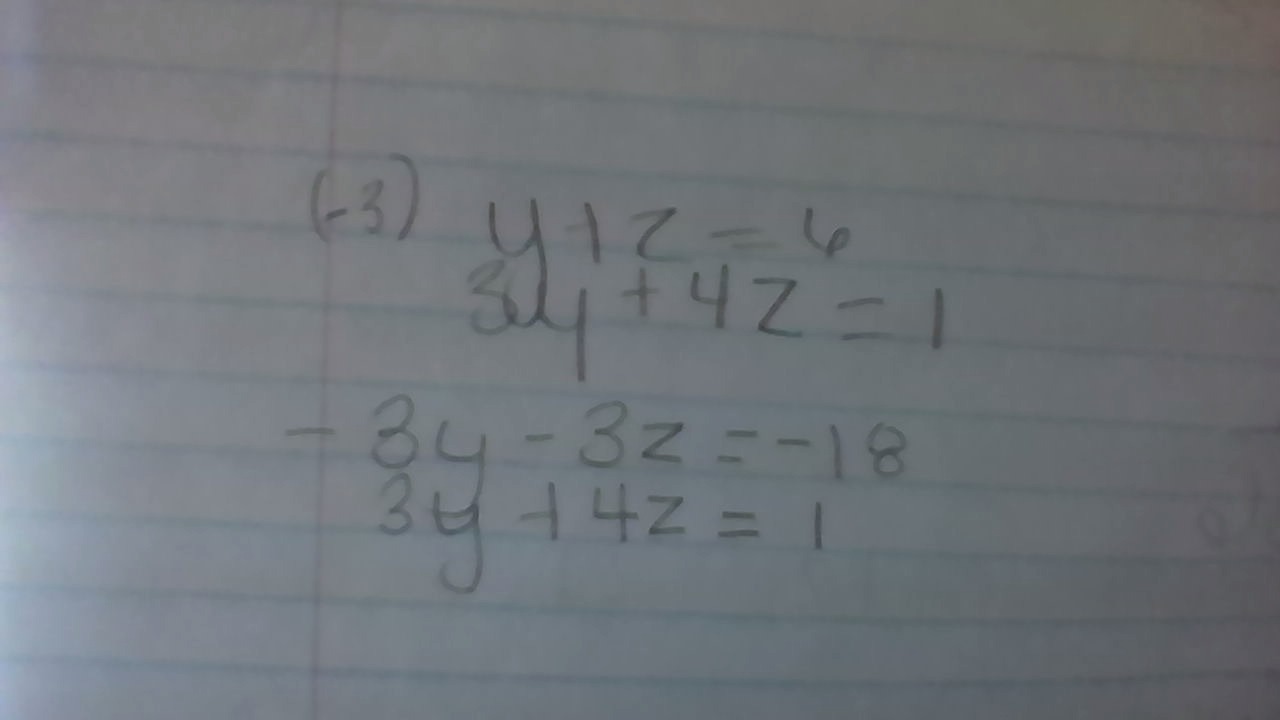 (-3) y+z=6
3y+4z=1
-3y-3z=-18
3y+4z=1